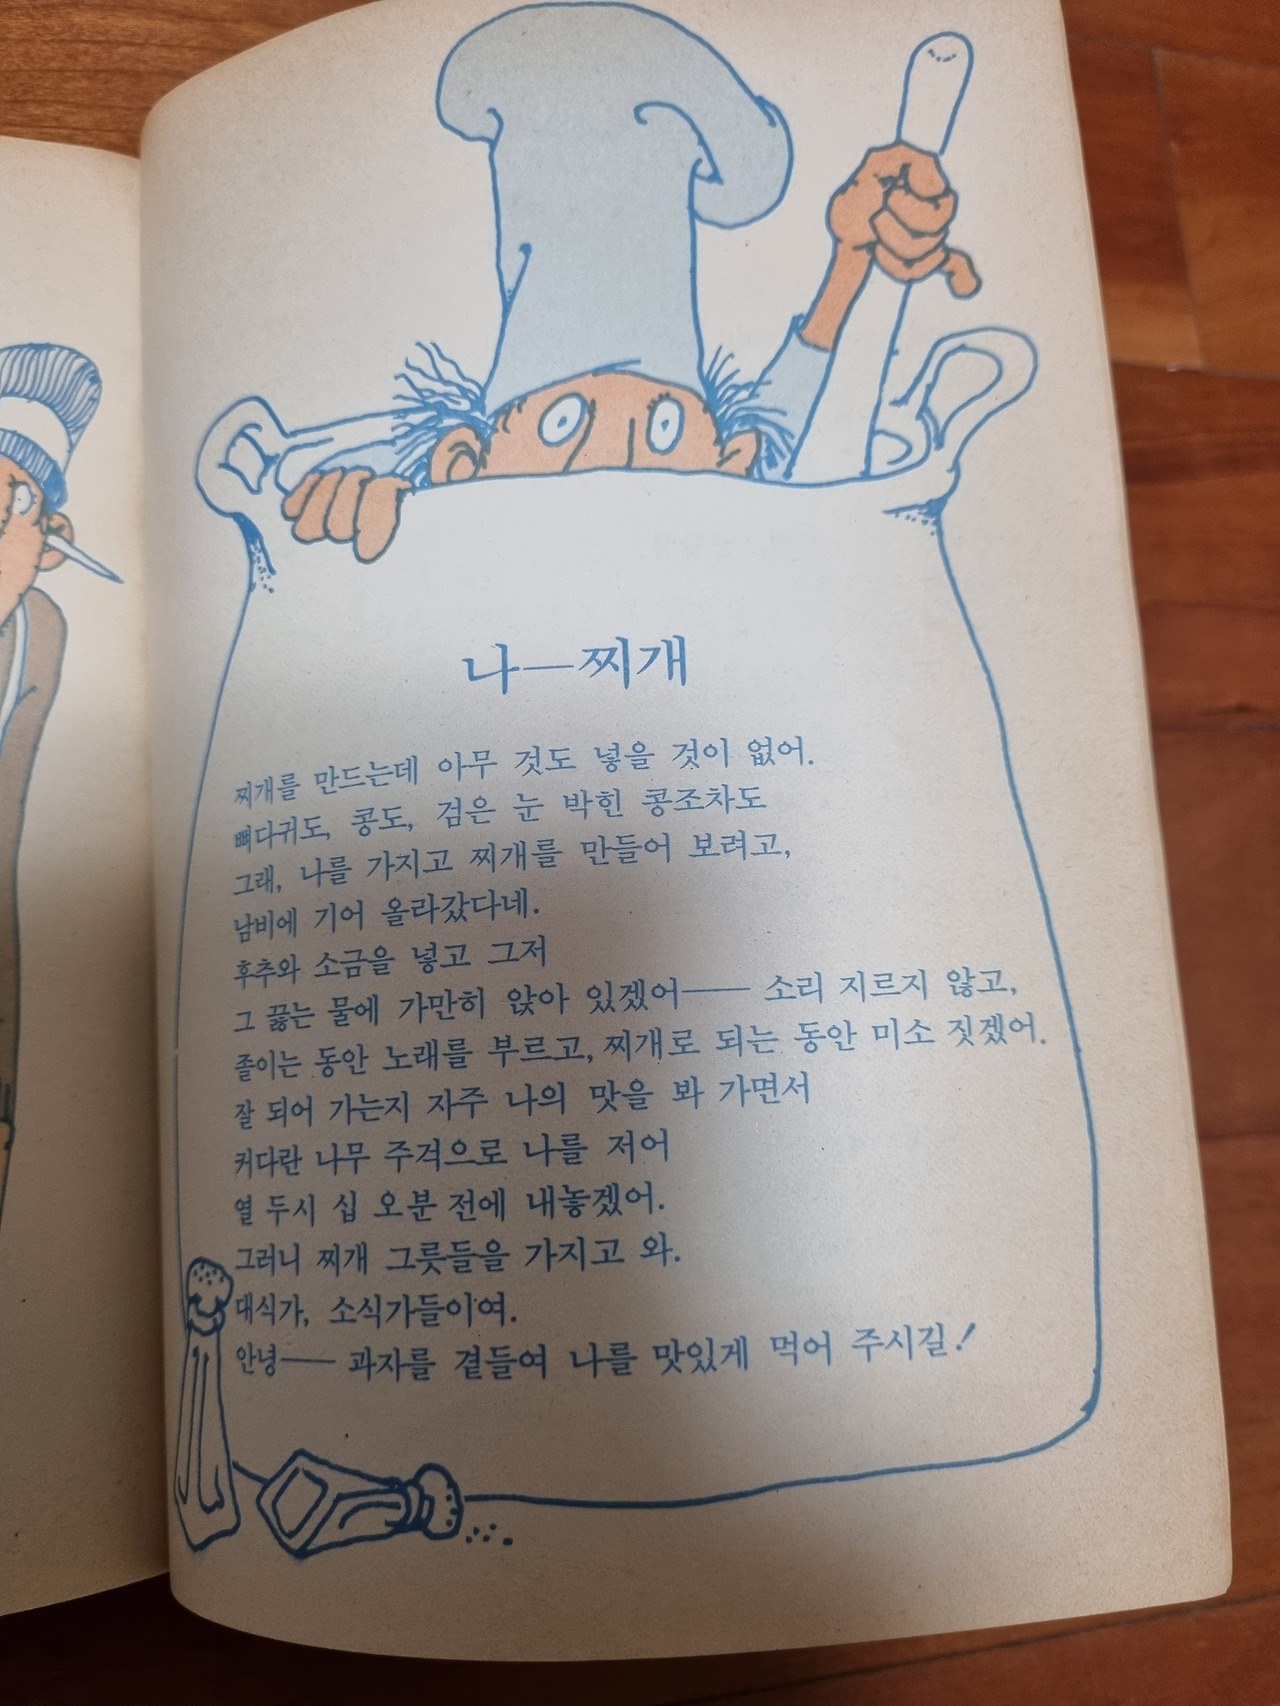 나—찌개
찌개를 만드는데 아무 것도 넣을 것이 없어.
뼈다귀도, 콩도, 검은 눈 박힌 콩조차도
그래, 나를 가지고 찌개를 만들어 보려고,
남비에 기어 올라갔다네.
후추와 소금을 넣고 그저
그 끓는 물에 가만히 앉아 있겠어—— 소리 지르지 않고,
졸이는 동안 노래를 부르고, 찌개로 되는 동안 미소 짓겠어.
잘 되어 가는지 자주 나의 맛을 봐 가면서
커다란 나무 주걱으로 나를 저어
열 두시 십 오분 전에 내놓겠어.
그러니 찌개 그릇들을 가지고 와.
대식가, 소식가들이여.
안녕—— 과자를 곁들여 나를 맛있게 먹어 주시길!